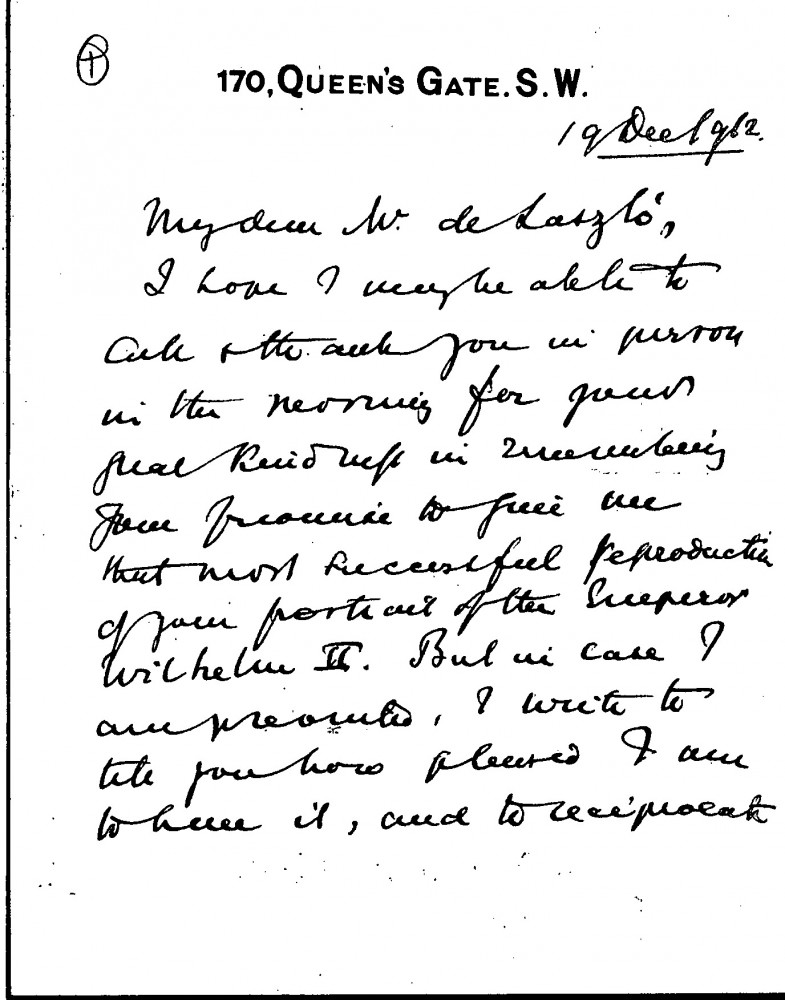 170, QUEEN'S GATE. S.W.
19 Dec 1912.
My dear Mr. de László,
I hope I may be able to
call & thank you in person
in the morning for your
great kindness in remembering
your promise to give me
that most successful reproduction
of your portrait of the Emperor
Wilhelm II. But in case I
am prevented, I write to
tell you how pleased I am
to have it, and to reciprocate